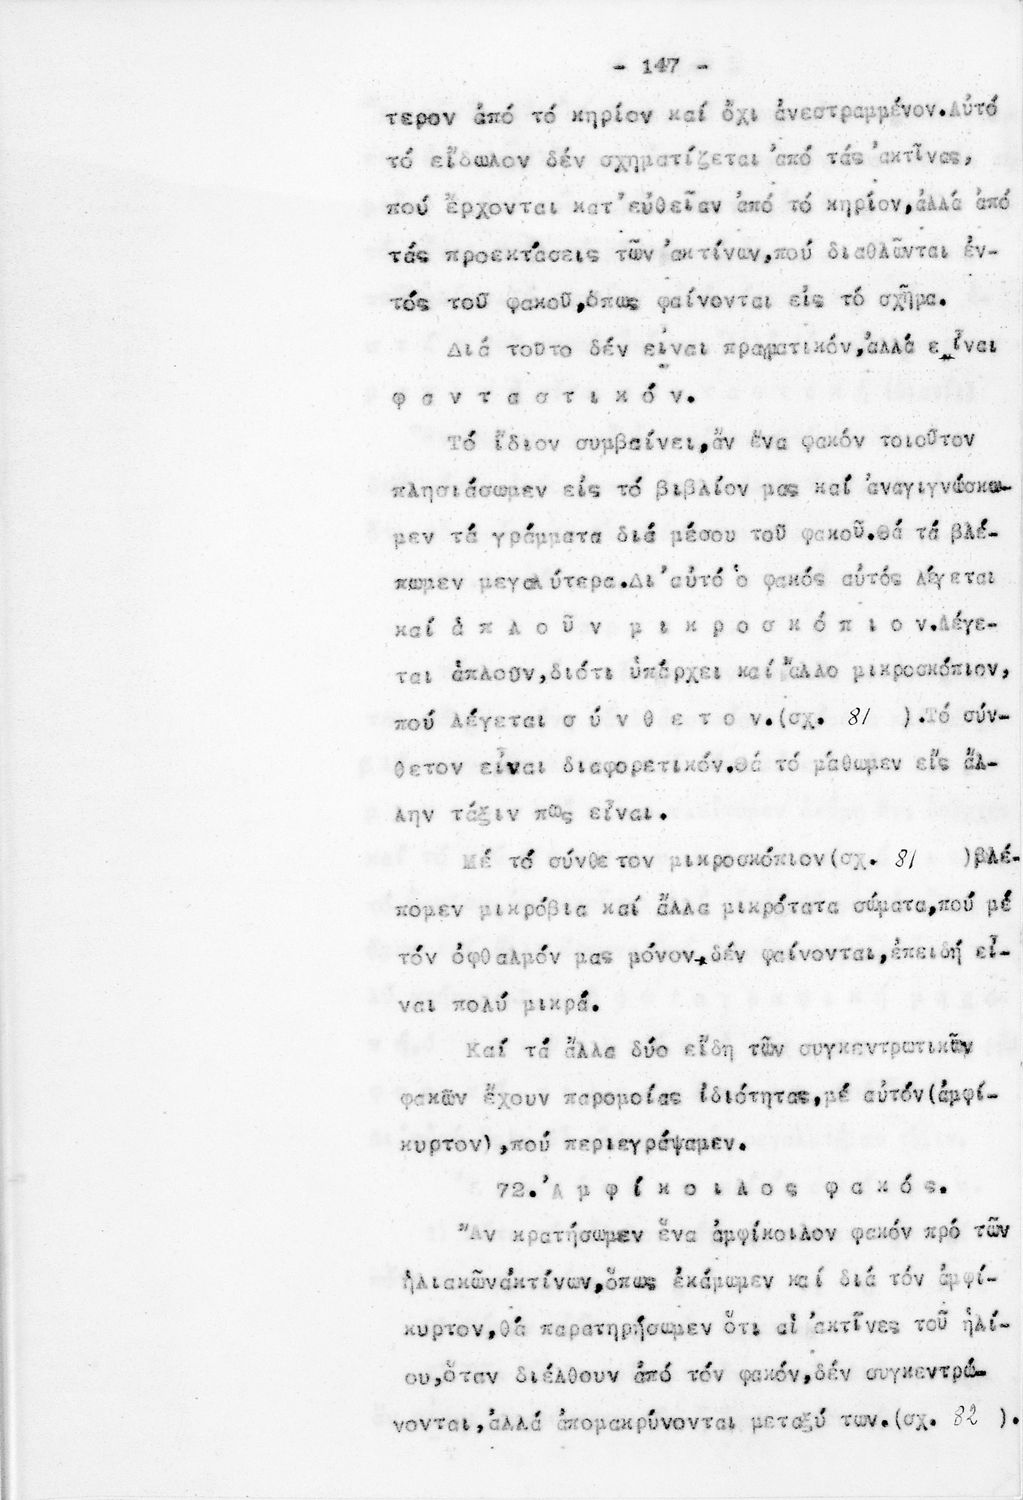 - 147 -
τερον ἀπό τό κηρίον καί ὄχι ἀνεστραμμένον.Αὐτό
τό εἴδωλον δέν σχηματίζεται ἀπό τάς ἀκτῖνας,
πού ἔρχονται κατ'εὐθεῖαν ἀπό τό κηρίον,ἀλλά ἀπό
τάς προεκτάσεις τῶν ἀκτίνων,πού διαθλῶνται ἐν-
τός τοῦ φακοῦ,ὅπως φαίνονται εἰς τό σχῆμα.
Διά τοῦτο δέν εἶναι πραγματικόν,ἀλλά εἶναι
φ α ν τ α σ τ ι κ ό ν.
Τό ἴδιον συμβαίνει,ἄν ἕνα φακόν τοιοῦτον
πλησιάσωμεν εἰς τό βιβλίον μας καί ἀναγιγνώσκω-
μεν τά γράμματα διά μέσου τοῦ φακοῦ.Θά τά βλέ-
πωμεν μεγαλύτερα.Δι'αὐτό ὁ φακός αὐτός λέγεται
καί ἁ π λ ο ῦ ν μ ι κ ρ ο σ κ ό π ι ο ν.Λέγε-
ται ἁπλοῦν,διότι ὑπάρχει καί ἄλλο μικροσκόπιον,
πού λέγεται σ ύ ν θ ε τ ο ν.(σχ. 81 ).Τό σύν-
θετον εἶναι διαφορετικόν.Θά τό μάθωμεν εἰς ἄλ-
λην τάξιν πῶς εἶναι.
Μέ τό σύνθετον μικροσκόπιον(σχ. 81 )βλέ-
πομεν μικρόβια καί ἄλλα μικρότατα σώματα,πού μέ
τόν ὀφθαλμόν μας μόνον,δέν φαίνονται,ἐπειδή εἶ-
ναι πολύ μικρά.
Καί τά ἄλλα δύο εἴδη τῶν συγκεντρωτικῶν
φακῶν ἔχουν παρομοίας ἰδιότητας,μέ αὐτόν(ἀμφί-
κυρτον),πού περιεγράψαμεν.
72.Ἀ μ φ ί κ ο ι λ ο ς φ α κ ό ς.
Ἄν κρατήσωμεν ἕνα ἀμφίκοιλον φακόν πρό τῶν
ἡλιακῶνἀκτίνων,ὅπως ἐκάμωμεν καί διά τόν ἀμφί-
κυρτον,θά παρατηρήσωμεν ὅτι αἱ ἀκτῖνες τοῦ ἡλί-
ου,ὅταν διέλθουν ἀπό τόν φακόν,δέν συγκεντρώ-
νονται,ἀλλά ἀπομακρύνονται μεταξύ των.(σχ. 82 ).